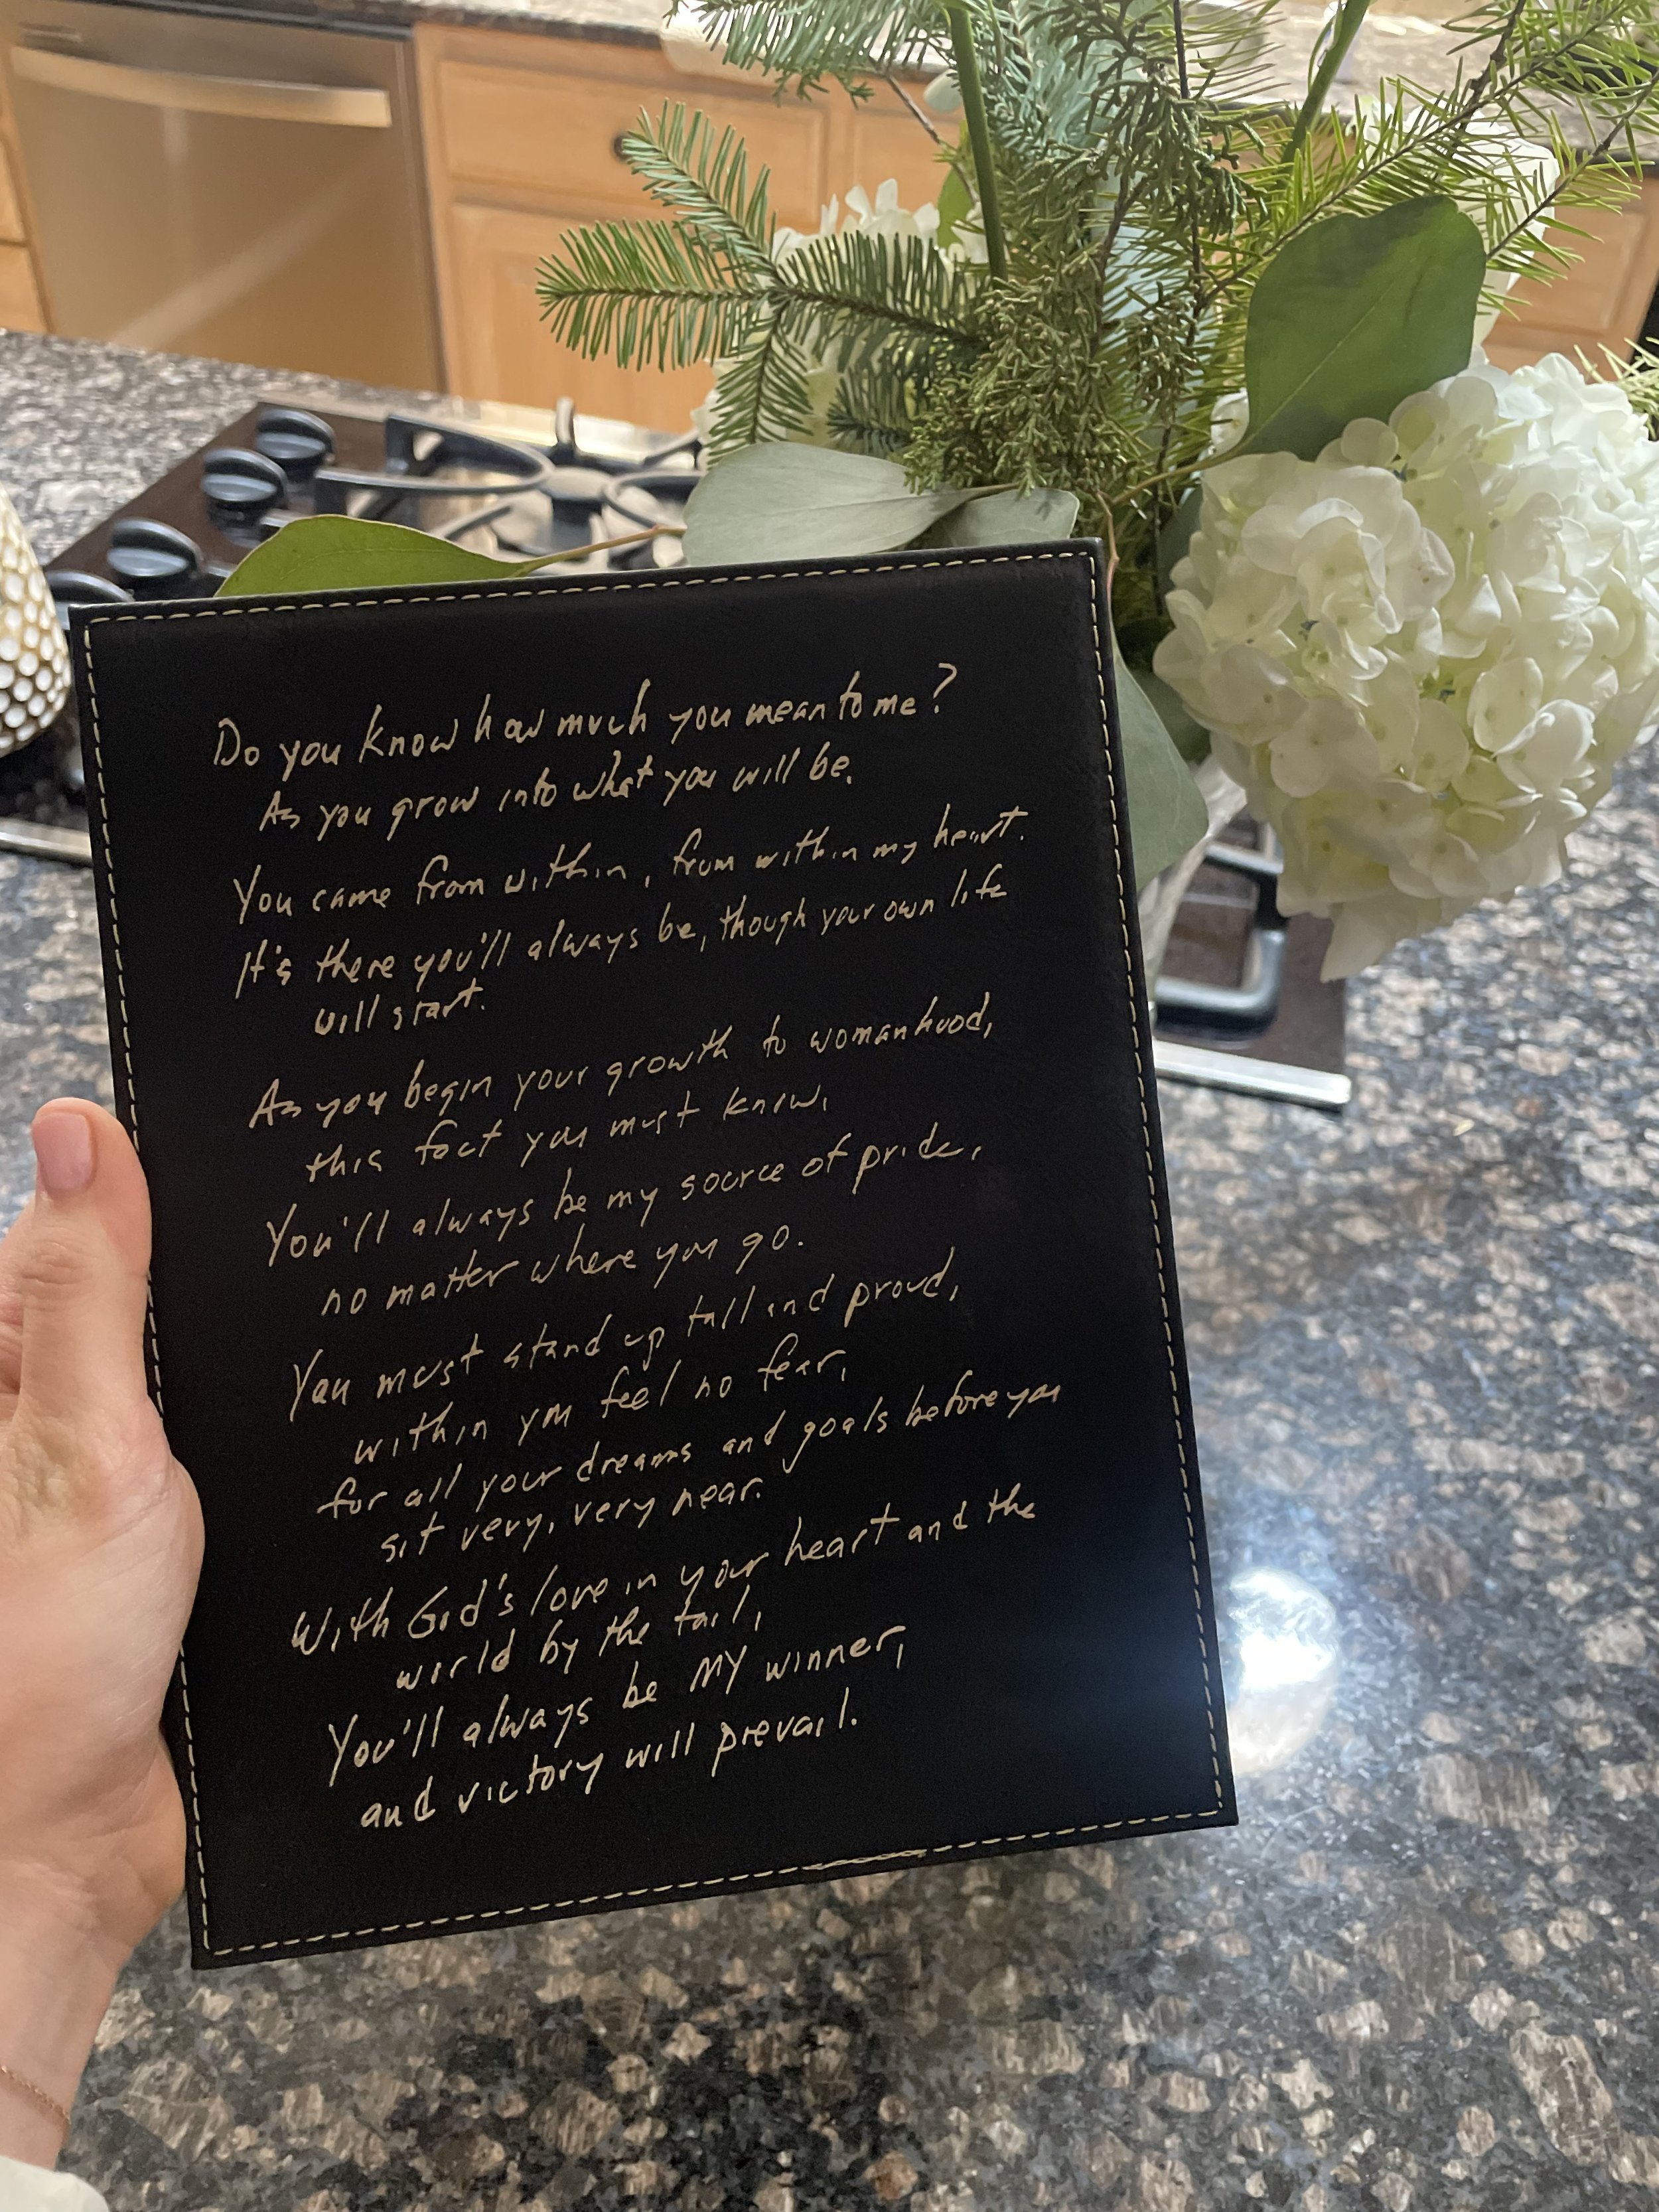 Do you know how much you mean to me?
As you grow into what you will be.
You came from within, from within my heart.
It's there you'll always be, though your own life
will start.
As you begin your growth to womanhood,
this fact you must know,
You'll always be my source of pride,
no matter where you go.
You must stand up tall and proud,
within you feel no fear,
for all your dreams and goals before you
sit very, very near.
With God's love in your heart and the
world by the tail,
You'll always be MY winner,
and victory will prevail.